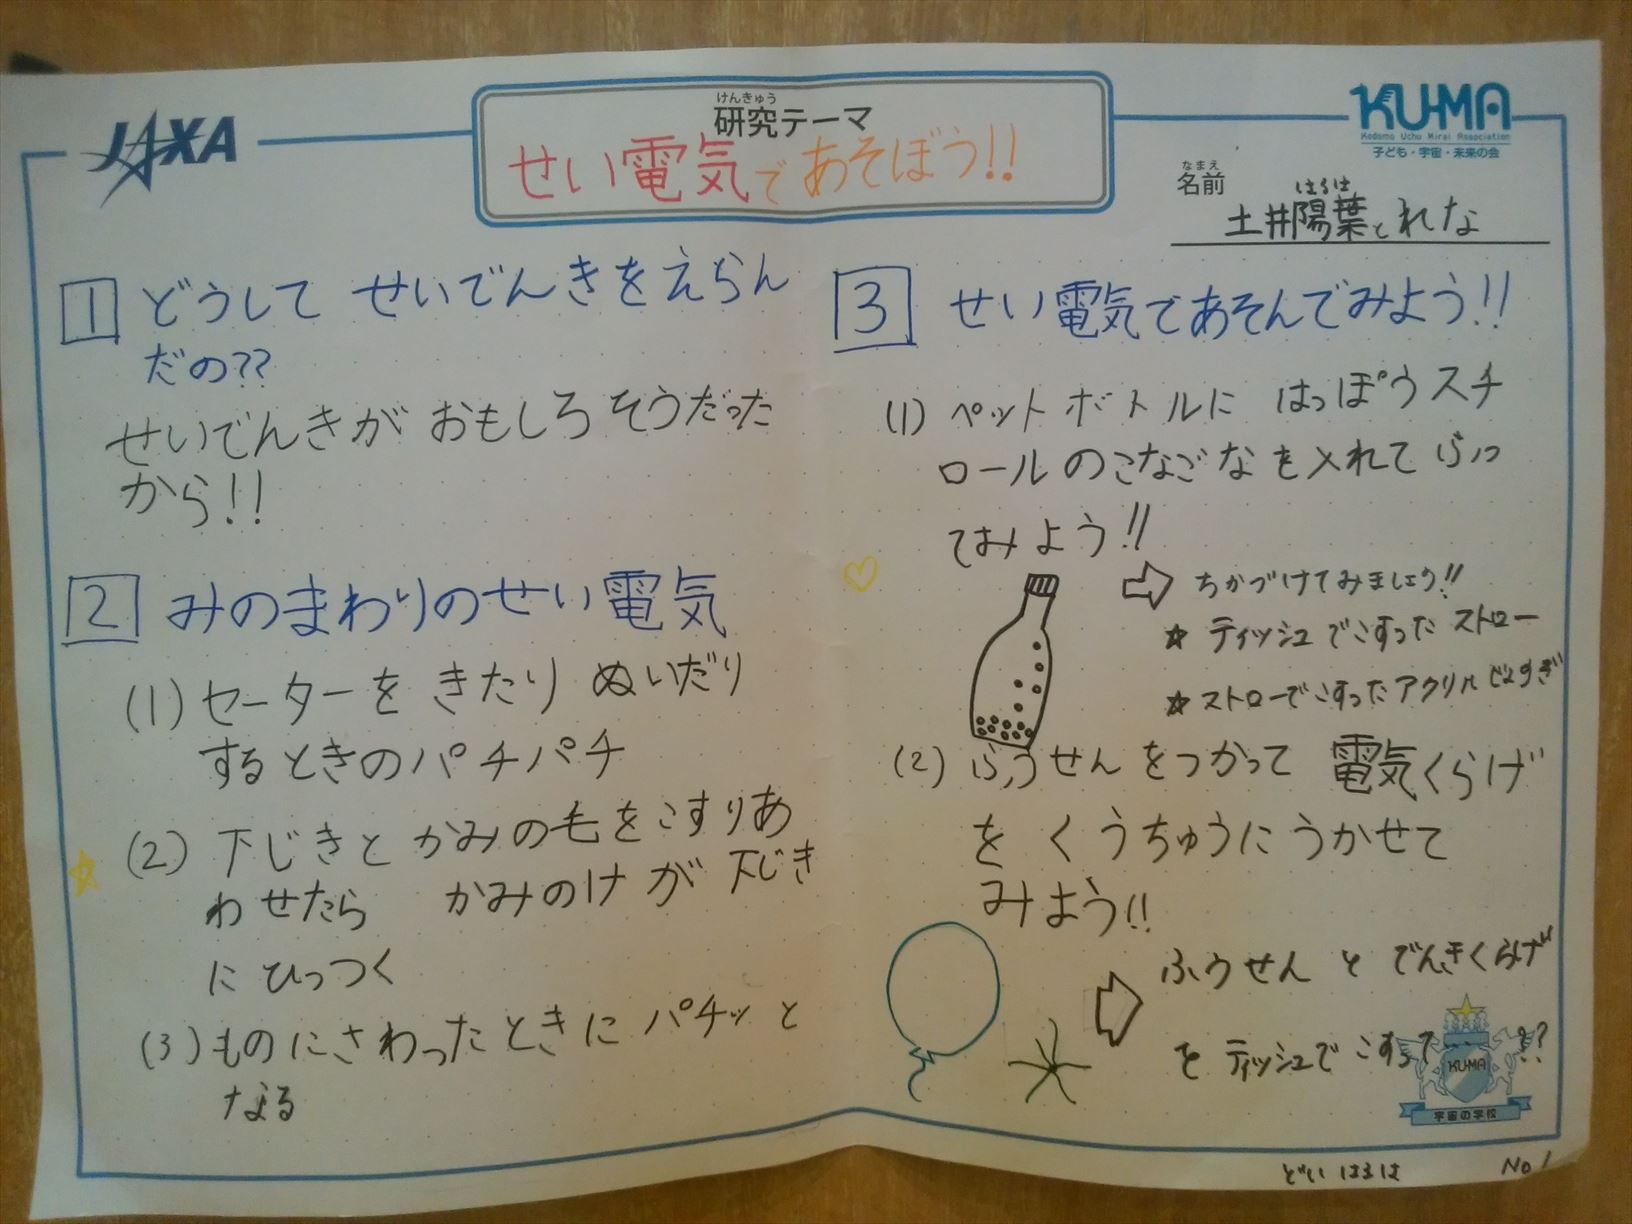 JAXA
けんきゅう
研究テーマ
せい電気であそぼう!!
KU-MA
Kodomo Uchu Mirai Association
子ども・宇宙・未来の会
なまえ
名前
はるは
土井陽葉とれな
1 どうして せいでんきをえらん
だの??
せいでんきが おもしろそうだった
から!!
2 みのまわりのせい電気
(1) セーターを きたり ぬいだり
するときのパチパチ
(2) 下じきと かみの毛をこすりあ
わせたら かみのけが下じき
に ひっつく
(3) ものにさわったときに パチッと
なる
3 せい電気であそんでみよう!!
(1) ペットボトルに はっぽうスチ
ロールのこなごなを入れて ふっ
てみよう!!
ちかづけてみましょう!!
☆ ティッシュでこすった ストロー
☆ ストローでこすったアクリルじょうぎ
(2) ふうせんをつかって 電気くらげ
を くうちゅうに うかせて
みよう!!
ふうせん と でんきくらげ
を ティッシュで こすって ??
KU-MA
宇宙の学校
どい はるは No 1